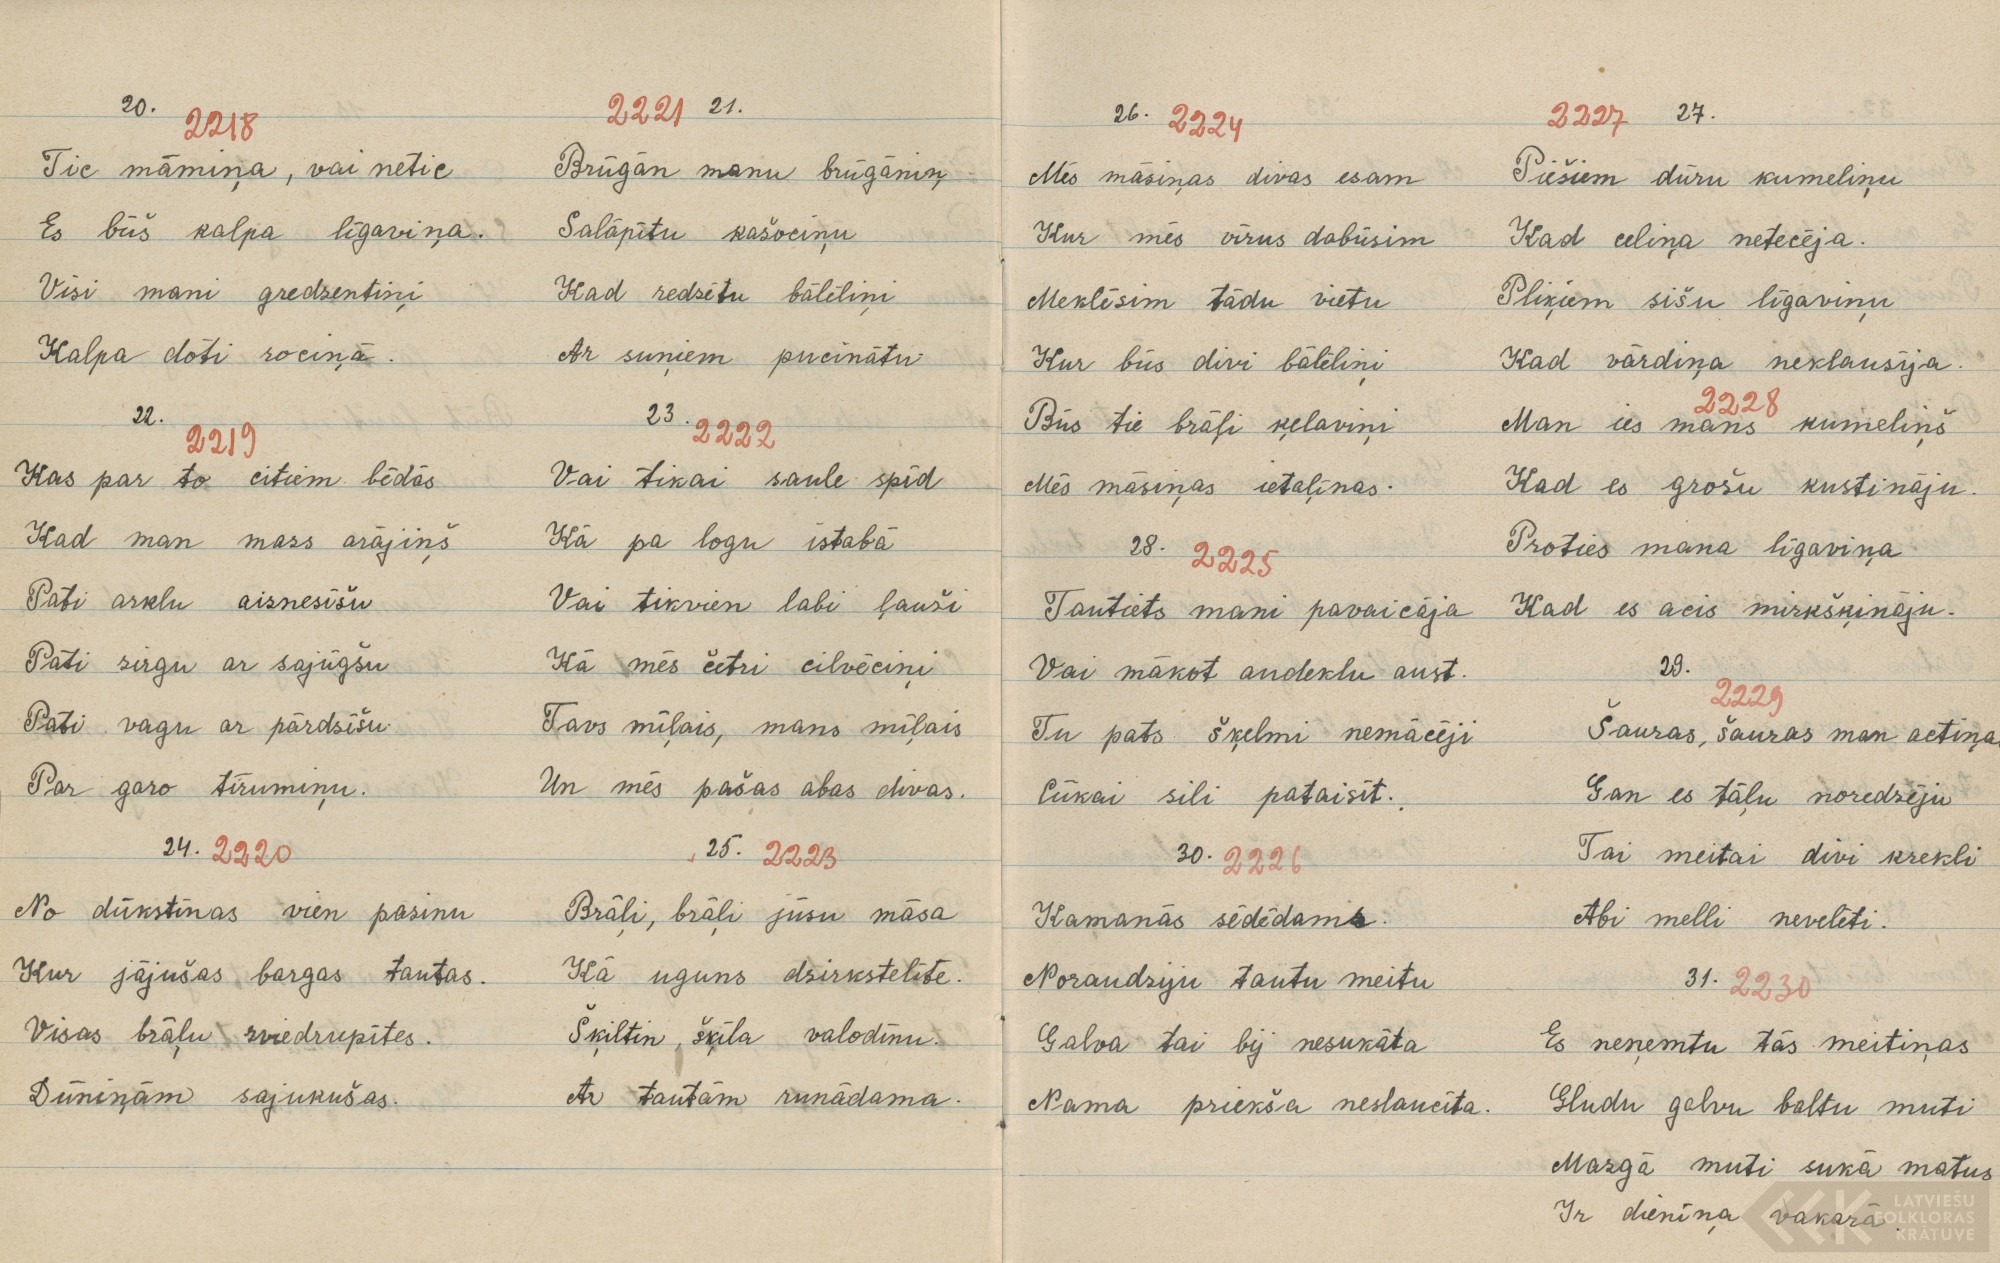 20.
2218
Tic māmiņa, vai netic
Es būš kalpa līgaviņa.
Visi mani gredzentiņi
Kalpa doti rociņā.
22.
2219
Kas par to citiem bēdās
Kad man mazs arājiņš
Pati arklu aiznesīšu
Pati zirgu ar sajūgšu
Pati vagu ar pārdzīšu
Par garo tīrumiņu.
24. 2220
No dūkstīnas vien pazinu
Kur jājušas bargas tautas.
Visas brāļu zviedrupītes.
Dūniņām sajukušas.
2221 21.
Brūgān manu brūgāniņ
Salāpītu kašociņu
Kad redzētu bālēliņi
Ar suņiem pucinātu
23. 2222
Vai tikai saule spīd
Kā pa logu istabā
Vai tikvien labi ļauši
Kā mēs četri cilvēciņi
Tavs mīļais, mans mīļais
Un mēs pašas abas divas.
25. 2223
Brāļi, brāļi jūsu māsa
Kā uguns dzirkstelīte.
Šķiltin, šķīla valodīnu.
Ar tautām runādama.
26. 2224
Mēs māsiņas divas esam
Kur mēs vīrus dabūsim
Meklēsim tādu vietu
Kur būs divi bālēliņi
Būs tie brāļi ķelaviņi
Mēs māsiņas ietaļiņas.
28. 2225
Tautiets mani pavaicāja
Vai mākot audeklu aust.
Tu pats šķelmi nemācēji
Cūkai sili pataisīt.
30. 2226
Kamanās sēdēdams.
Noraudziju tautu meitu
Galva tai bij nesukāta
Nama priekša neslaucīta.
2227 27.
Piešiem dūru kumeliņu
Kad celiņa netecēja.
Pliķiem sišu līgaviņu
Kad vārdiņa neklausīja.
2228
Man ies mans kumeliņš
Kad es grošu kustināju.
Proties mana līgaviņa
Kad es acis mirkšķināju.
29.
2229
Šauras, šauras man actiņas
Gan es tāļu noredzēju
Tai meitai divi krekli
Abi melli nevelēti.
31. 2230
Es neņemtu tās meitiņas
Gludu galvu baltu muti
Mazgā muti sukā matus
Ir dieniņa vakarā.
LATVIEŠU
FOLKLORAS
KRĀTUVE